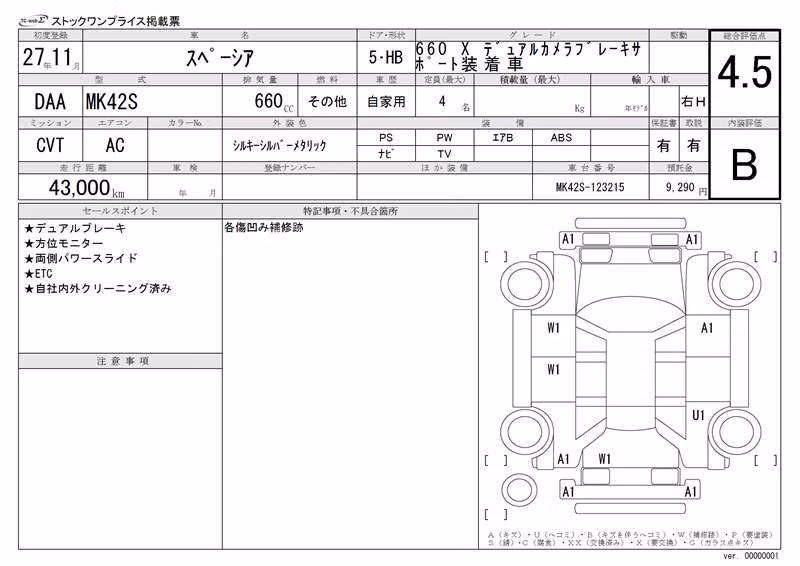 TC-webΣ ストックワンプライス掲載票
初度登録 車名 ドア・形状 グレード 駆動 総合評価点
27年11月 スペーシア 5・HB 660 X デュアルカメラブレーキサポート装着車 4.5
型式 排気量 燃料 車歴 定員(最大) 積載量(最大) 輸入車
DAA MK42S 660CC その他 自家用 4名 Kg 年ﾓﾃﾞﾙ 右H
ミッション エアコン カラーNo. 外装色 装備 保証書 取説 内装評価
CVT AC シルキーシルバーメタリック PS PW エアB ABS 有 有 B
ナビ TV
走行距離 車検 登録ナンバー ほか装備 車台番号 預託金
43,000km 年 月 MK42S-123215 9,290円
セールスポイント
★デュアルブレーキ
★方位モニター
★両側パワースライド
★ETC
★自社内外クリーニング済み
注意事項
特記事項・不具合箇所
各傷凹み補修跡
A1 A1
[ ] [ ]
W1 A1
W1
U1
[ ] A1 W1 [ ]
A1 A1
[ ]
A(キズ)・U(ヘコミ)・B(キズを伴うヘコミ)・W(補修跡)・P(要塗装)
S(錆)・C(腐食)・XX(交換済み)・X(要交換)・G(ガラス点キズ)
ver. 00000001